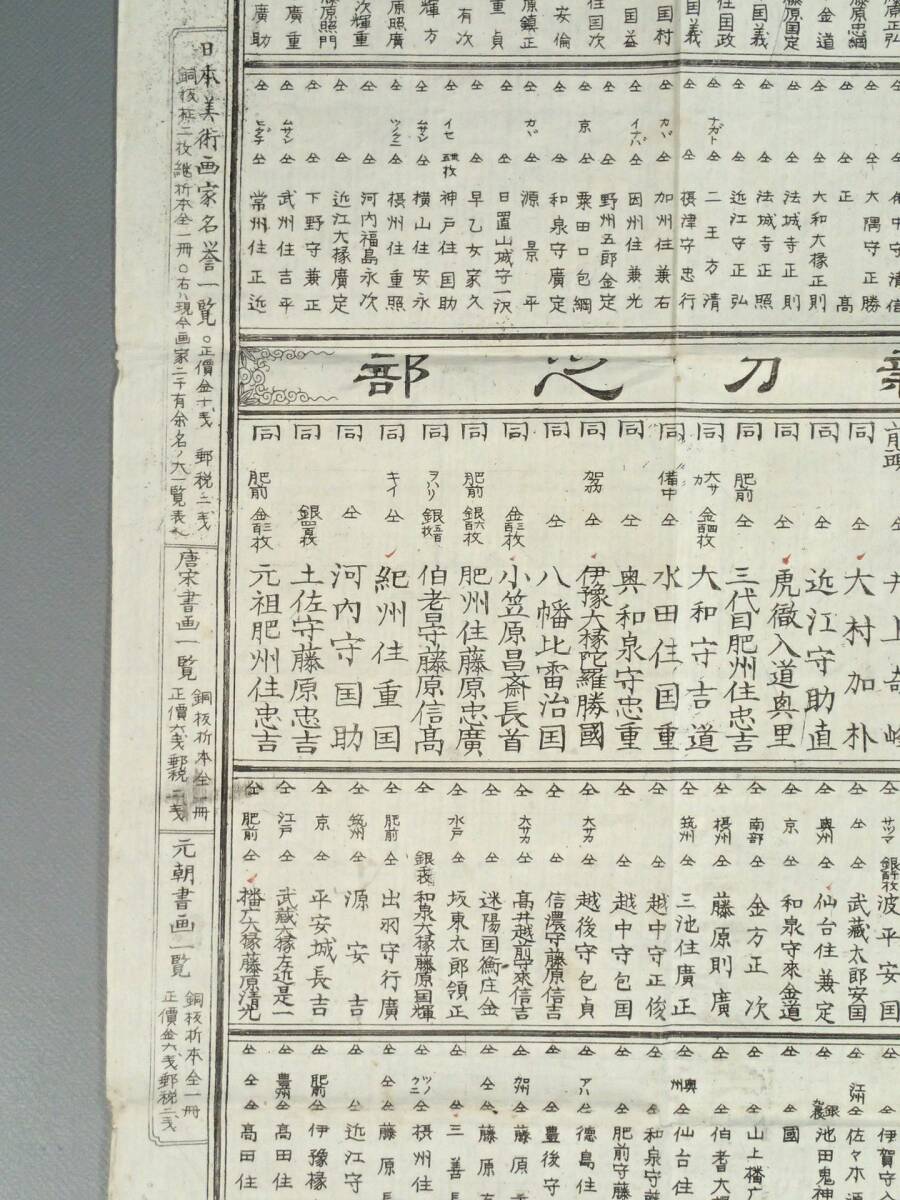 廣助
廣重
藤原照門
次輝重
原照廣
輝方
有次
重貞
原鎮正
安倫
住国次
国益
国村
国義
住国政
国義
藤原国定
金道
藤原忠綱
廣正弘
仝 ヒダチ 仝 常州住正近
仝 ムサシ 仝 武州住吉平
仝 仝 下野守兼正
仝 仝 近江大椽廣定
仝 仝 河内福島永次
仝 ツノクニ 仝 摂州住重照
仝 ムサシ 仝 横山住安永
仝 イセ 神戸住国助
仝 仝 早乙女家久
仝 仝 日置山城守一沢
仝 カバ 仝 源景平
仝 仝 和泉守廣定
仝 京 仝 粟田口包綱
仝 仝 野州五郎金定
仝 イナバ 仝 因州住兼光
仝 カバ 仝 加州住兼右
仝 仝 摂津守忠行
仝 ナガト 仝 二王方清
仝 仝 近江守正弘
仝 仝 法城寺正照
仝 仝 法城寺正則
仝 仝 大和大椽正則
仝 仝 正髙
仝 仝 大隅守正勝
刀之部
前頭
同 仝 大村加朴
同 仝 近江守助直
同 仝 虎徹入道奥里
同 肥前 仝 三代目肥州住忠吉
同 大サカ 金百四枚 大和守吉道
同 備中 仝 水田住国重
同 仝 奥和泉守忠重
同 仝 伊豫大椽陀羅勝國
同 仝 八幡比雷治国
同 金百三枚 小笠原昌斎長首
同 肥前 銀百六枚 肥州住藤原忠廣
同 伯耆守藤原信髙
同 キイ 仝 紀州住重国
同 仝 河内守国助
同 銀四百枚 土佐守藤原忠吉
同 肥前 金百三枚 元祖肥州住忠吉
サツマ 波平安国
仝 仝 仝 武蔵太郎安国
仝 奥州 仝 仙台住兼定
仝 京 仝 和泉守來金道
仝 南部 仝 金方正次
仝 摂州 仝 藤原則廣
仝 筑州 仝 三池住廣正
仝 仝 越中守正俊
仝 仝 越中守包国
仝 大サカ 仝 越後守包貞
仝 仝 信濃守藤原信吉
仝 大サカ 仝 髙井越前守來信吉
仝 仝 迷陽国衡庄金
仝 水戸 仝 坂東太郎領正
仝 和泉大椽藤原国輝
仝 肥前 仝 出羽守行廣
仝 筑州 仝 源安吉
仝 京 仝 平安城長吉
仝 江戸 仝 武藏大椽左近是一
仝 肥前 仝 播广大椽藤原清光
仝 伊賀守
仝 江州 仝 佐々木源
仝 池田鬼神
仝 仝 國
仝 仝 山上播广
仝 仝 伯耆大椽
仝 奥州 仝 仙台住
仝 仝 和泉守
仝 仝 肥前守藤
仝 アハ 仝 徳島住
仝 仝 豊後守
仝 賀州 仝 藤原
仝 仝 仝 藤原
仝 仝 三善長
仝 ツノクニ 仝 摂州住
仝 仝 仝 藤原
仝 仝 近江守
仝 肥前 仝 伊豫椽
仝 豊州 仝 髙田住
仝 仝 仝 髙田住
日本美術画家名誉一覧 ○正價金十戋 郵税二戋
銅板極二枚継折本全一冊○右ハ現今画家二千有余名ノ大一覧表也
唐宋書画一覧
銅板折本全一冊
正價六戋郵税二戋
元朝書画一覧
銅板折本全一冊
正價金六戋郵税二戋